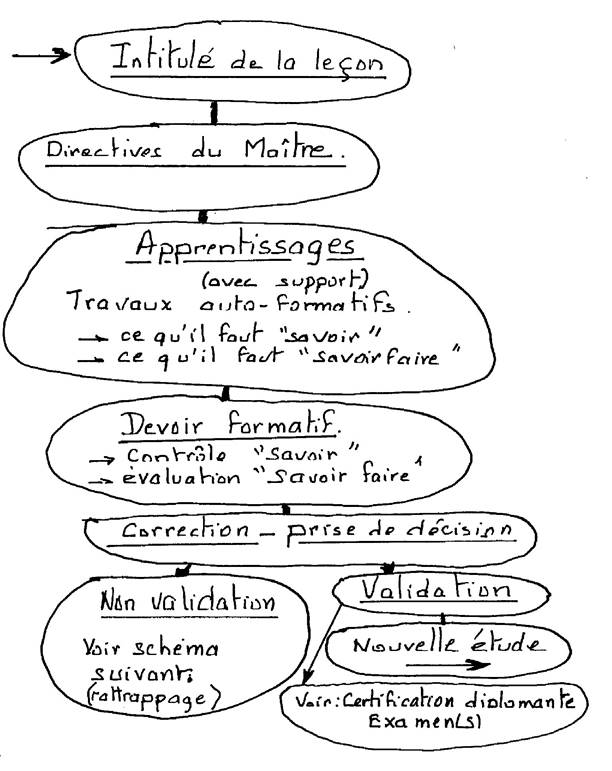 Intitulé de la leçon
Directives du Maître.
Apprentissages
(avec support)
Travaux auto-formatifs.
→ ce qu'il faut "savoir"
→ ce qu'il faut "savoir faire"
Devoir formatif.
→ contrôle "savoir"
→ évaluation "savoir faire"
Correction – prise de décision
Non validation
Voir schéma
suivant.
(rattrappage)
Validation
Nouvelle étude
→
Voir: Certification diplomante
Examen(s)